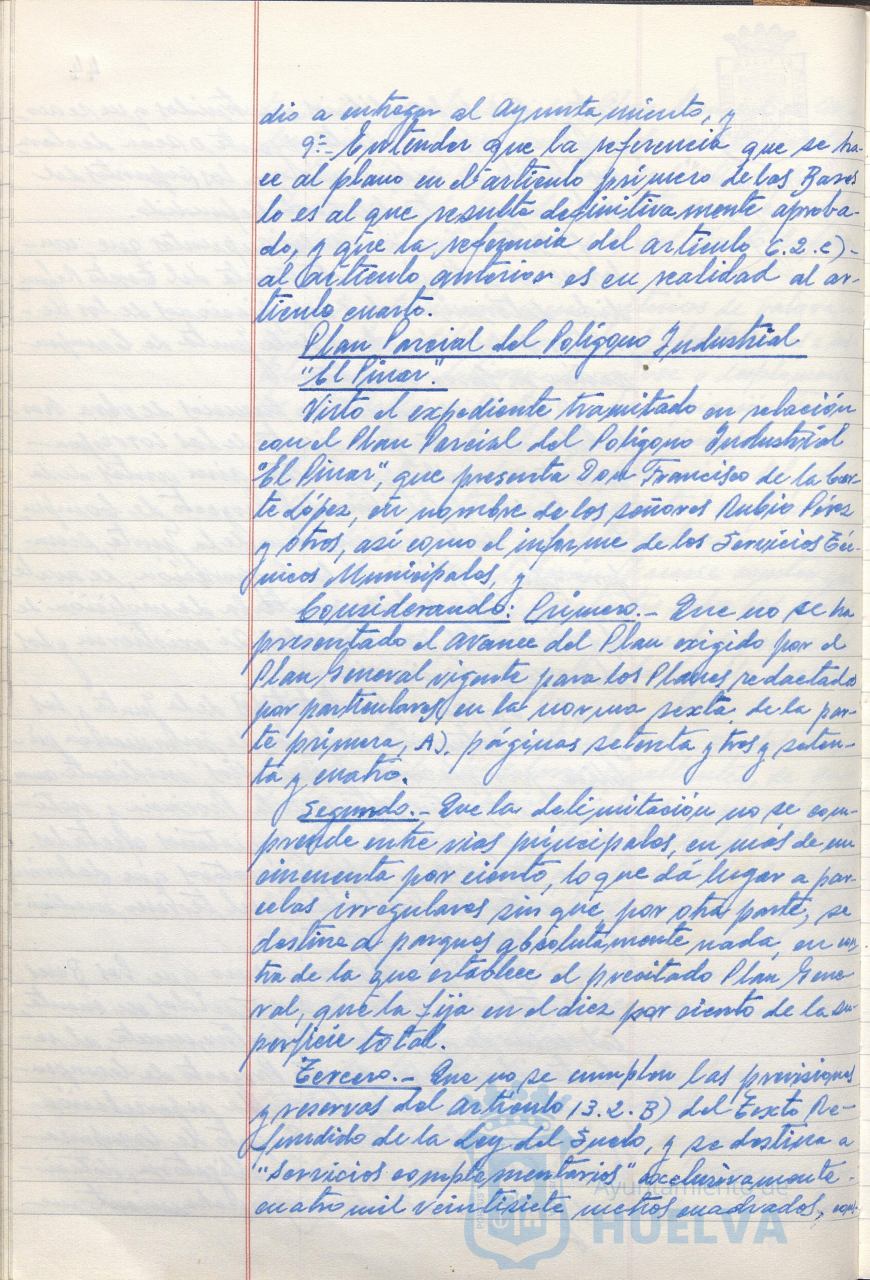 dio a entregar al Ayuntamiento, y
9º.- Entender que la referencia que se ha-
ce al plano en el artículo primero de las Bases
lo es al que resulte definitivamente aproba-
do, y que la referencia del artículo 6.2.c)-
al artículo anterior es en realidad al ar-
tículo cuarto.
Plan Parcial del Polígono Industrial
"El Pinar".
Visto el expediente tramitado en relación
con el Plan Parcial del Polígono Industrial
"El Pinar", que presenta Don Francisco de la Cor-
te López, en nombre de los señores Rubio Pérez
y otros, así como el informe de los Servicios Téc-
nicos Municipales, y
Considerando: Primero.- Que no se ha
presentado el avance del Plan exigido por el
Plan General vigente para los Planes redactados
por particulares, en la norma sexta, de la par-
te primera, A), páginas setenta y tres y seten-
ta y cuatro.
Segundo.- Que la delimitación no se com-
prende entre vias principales, en más de un
cincuenta por ciento, lo que dá lugar a par-
celas irregulares sin que, por otra parte, se
destine a parques absolutamente nada, en con-
tra de la que establece el precitado Plan Gene-
ral, que la fija en el diez por ciento de la su-
perficie total.
Tercero.- Que no se cumplen las previsiones
y reservas del artículo 13.2.B) del Texto Re-
fundido de la Ley del Suelo, y se destina a
"Servicios complementarios" exclusivamente
cuatro mil veintisiete metros cuadrados,
Ayuntamiento de
HUELVA